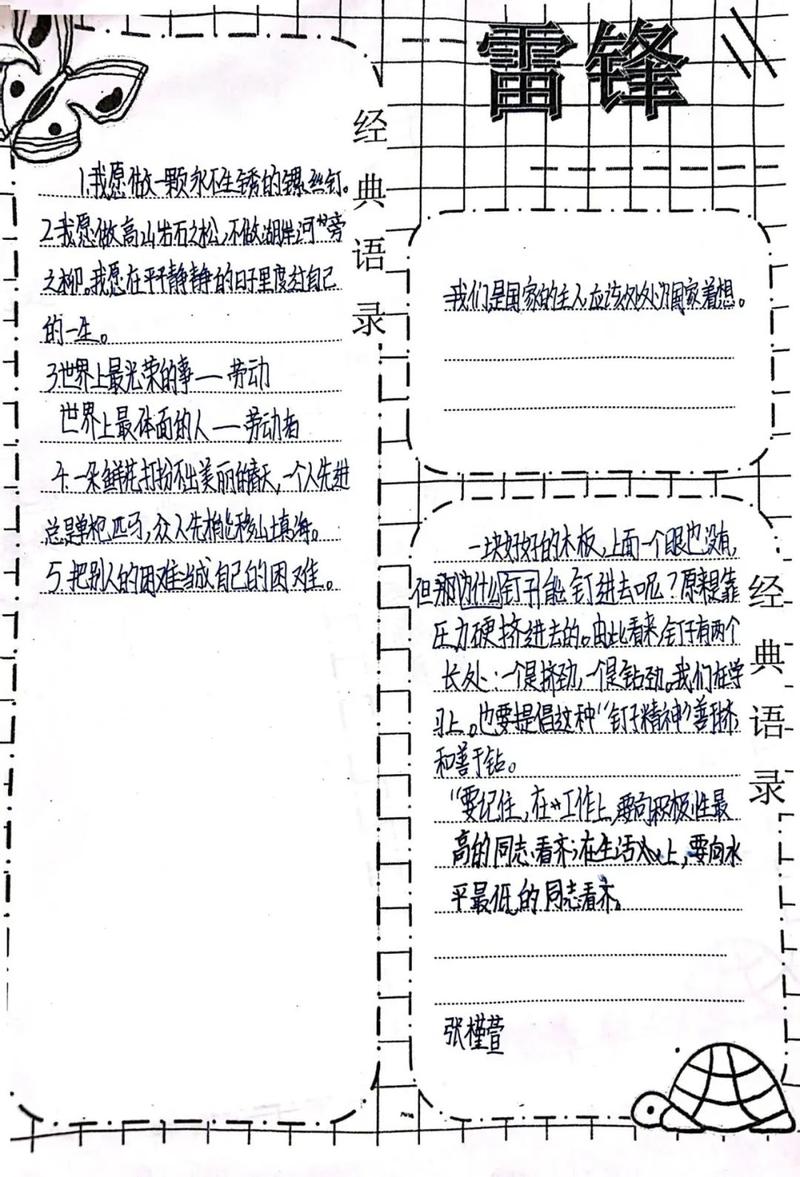 雷锋
经典语录
1.我愿做一颗永不生锈的螺丝钉。
2.我愿做高山岩石之松,不做湖岸河旁
之柳。我愿在平平静静的日子里度过自己
的一生。
3.世界上最光荣的事——劳动
世界上最体面的人——劳动者
4.一朵鲜花打扮不出美丽的春天,一个人先进
总是单枪匹马,众人先进能移山填海。
5.把别人的困难当成自己的困难。
我们是国家的主人,应该处处为国家着想。
经典语录
一块好好的木板,上面一个眼也没有,
但那为什么钉子能钉进去呢?原来是靠
压力硬挤进去的。由此看来,钉子有两个
长处:一个是挤劲,一个是钻劲。我们在学
习上。也要提倡这种"钉子精神"善于挤
和善于钻。
"要记住,在工作上,要向积极性最
高的同志看齐;在生活上,要向水
平最低的同志看齐。
张槿萱